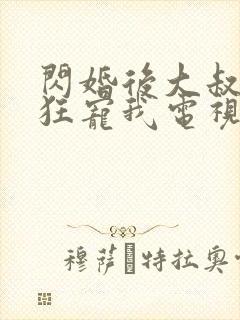 閃婚後大叔
狂寵我電視
穆薩 特拉奧